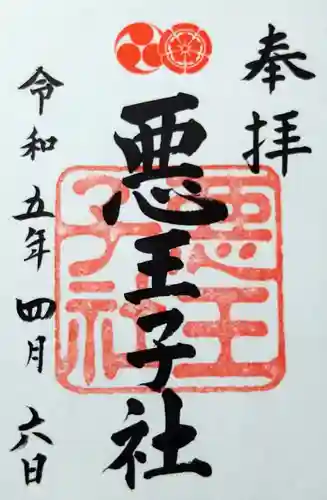 奉拝
悪王子社
悪王子社
令和五年四月六日